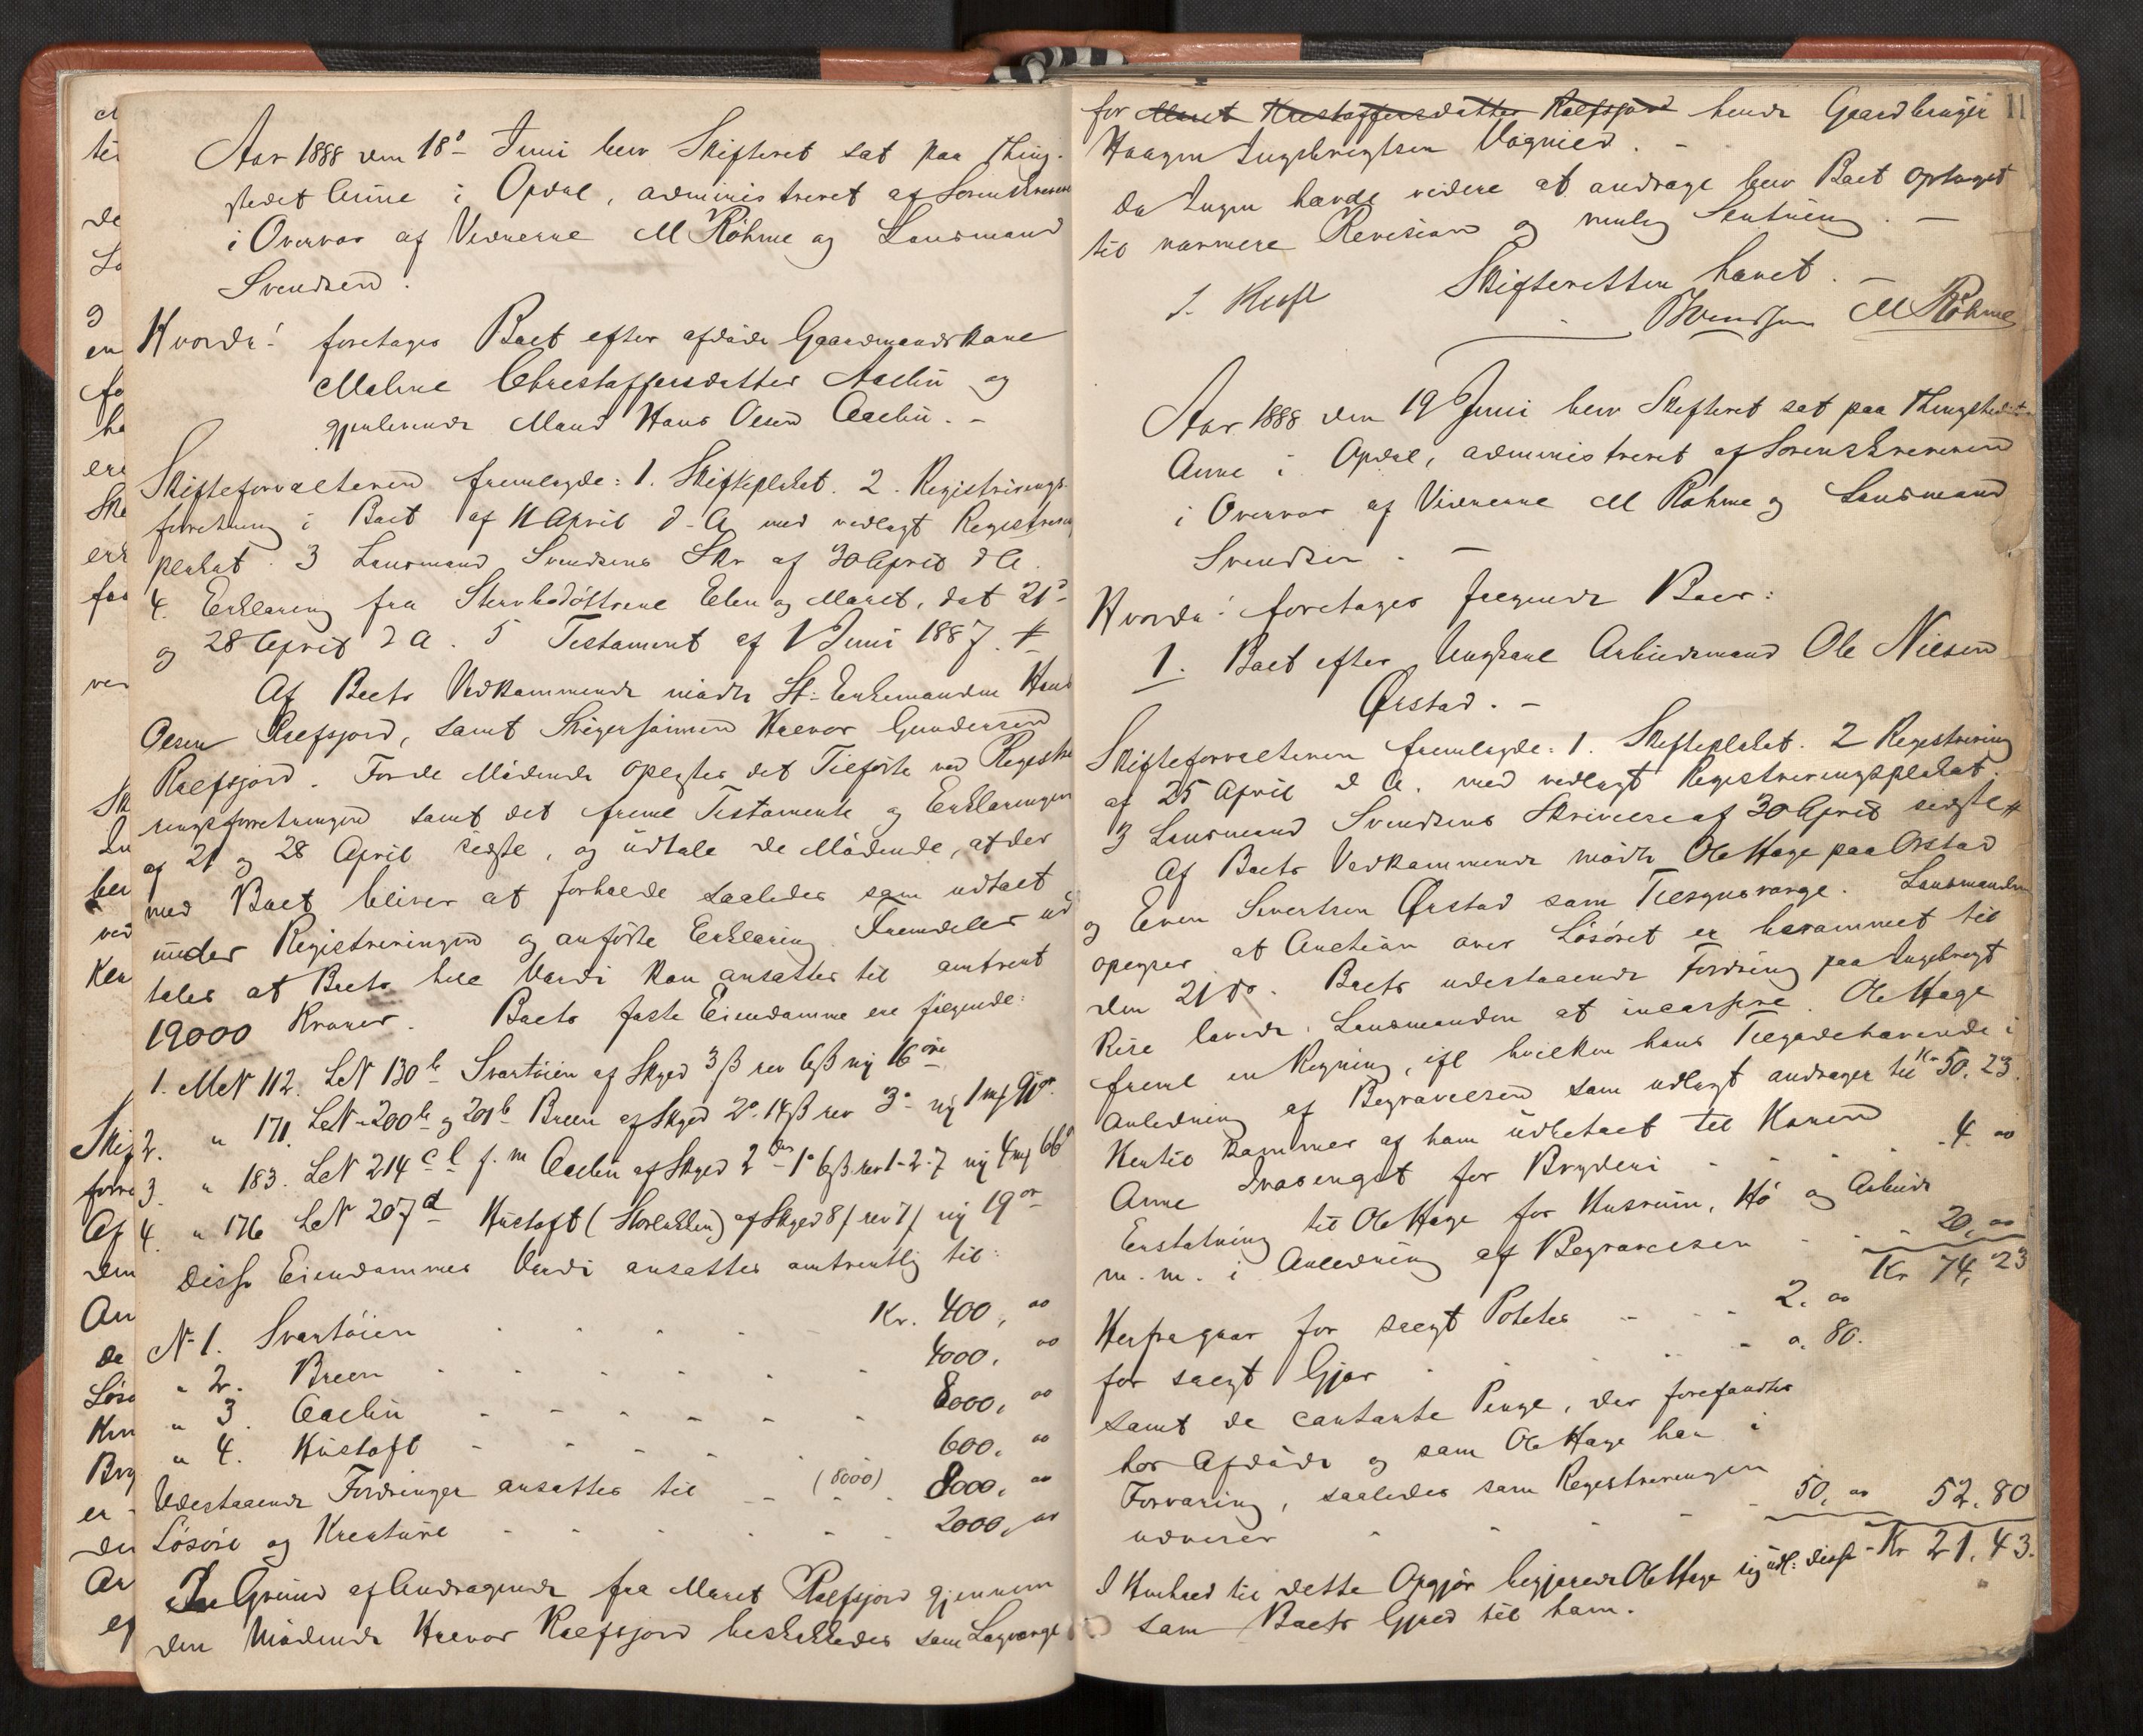 Aar 1888 den 18de Juni blev Skifteret sat paa Thing-
stedet Aune i Opdal, administreret af Sorenskriveren
i Overvær af Vidnerne M Röhme og Lensmand
Svendsen.
Hvorda! foretages Boet efter afdøde Gaardmandskone
Malene Christoffersdatter Aalbu og
gjenlevende Mand Hans Olsen Aalbu. -
Skifteforvalteren fremlagde: 1. Skifteplakat. 2. Registrerings-
forretning i Boet af 11 April d. A. med vedlagt Registrerings
plakat. 3 Lensmand Svendsens Skr af 30 April d A.
4. Erklæring fra Stervbodöttrene Eli og Maret, dat 21de
og 28 April d A. 5 Testament af 1 Juni 1887. #
Af Boets Vedkommende mödte St: Enkemanden Hans
Olsen Ralfsjord, samt Svigersönnen Halvor Gundersen
Ralfsjord. For de Mödende oplæstes det Tilförte ved Registre
ringsforretningen samt det freml Testamente og Erklæringen
af 21 og 28 April sidstl, og udtalte de Mödende, at der
med Boet bliver at forholde saaledes som udtalt
under Registreringen og anförte Erklæring. Fremdeles ud
tales at Boets hele Værdi kan ansættes til omtrent
19000 Kroner. Boets faste Eiendomme ere fölgende:
1. MN 112. LN 130b Svartöien af Skyld 3 ß rev 6 ß ny 16 öre
2. " 171. LN 200b og 201b Breen af Skyld 2 o. 14 ß rev 3 o. ny 1 mk 90 ör
3 " 183. LN 214 c l f. m Aalbu af Skyld 2 dr 1 o 6 ß rev 1-2-7 ny 4 mk 66 ö
4. " 176 LN 207d Hustoft (Storlukken) af Skyld 8 ß rev 7 ß ny 19 ör
Disse Eiendommes Værdi ansættes omtrentlig til:
N 1. Svartöien Kr. 400, 00
" 2. Breen 4000, 00
" 3. Aalbu 8000, 00
" 4. Hustoft 600, 00
Udestaaende Fordringer ansættes til (8000) 8000, 00
Lösöre og Kreature 2000, 00
Paa Grund af Andragende fra Maret Ralfsjord gjennem
den Mödende Halvor Ralfsjord beskikkedes som Lagværge
11
for Maret Kristoffersdatter Ralfsjord hende Gaardbruger
Haagen Ingebrigtsen Vognild. -
Da Ingen havde videre at andrage blev Boet optaget
til nærmere Revision og mulig Slutning. -
Skifteretten hævet. -
J. Kroft
Svendsen M Röhme
Aar 1888 den 19 Juni blev Skifteret sat paa Thingstedet
Aune i Opdal, administreret af Sorenskriveren
i Overvær af Vidnerne M Röhme og Lensmand
Svendsen. -
Hvorda! foretages fölgende Boer:
1. Boet efter Ungkarl Arbeidsmand Ole Nilsen
Ørstad. -
Skifteforvalteren fremlagde: 1. Skifteplakat. 2 Registrering
af 25 April d A. med vedlagt Registreringsplakat.
3 Lensmand Svendsens Skrivelse af 30 April sidstl #
Af Boets Vedkommende mödte Ole Hage paa Ørstad
og Even Sivertsen Ørstad som Tilsynsværge. Lensmanden
oplyser at Auction over Lösöret er berammet til
den 21 ds. Boets udestaaende Fordring paa Ingebrigt
Rise lovede Lensmanden at incassere. Ole Hage
freml en Regning, ifl hvilken hans Tilgodehavende i
Anledning af Begravelsen som udlagt andrager til Kr 50, 23.
Hertil kommer af ham udbetalt til Konen
Anne Indsenget for Brygderi 4. 00
Erstatning til Ole Hage for Husrum, Hö og Arbeide
m. m. i Anledning af Begravelsen 20, 00
Kr 74, 23
Herfra gaar for solgt Poteter 2. 00
for solgt Gjær 0. 80.
samt de contante Penge, der forefandtes
hos Afdöde og som Ole Hage har i
Forvaring, saaledes som Registreringen
udviser 50, 00 52. 80
Kr 21, 43.
I Henhold til dette Opgjør begjærede Ole Hage sig udl: disse
som Boets Gjæld til ham.